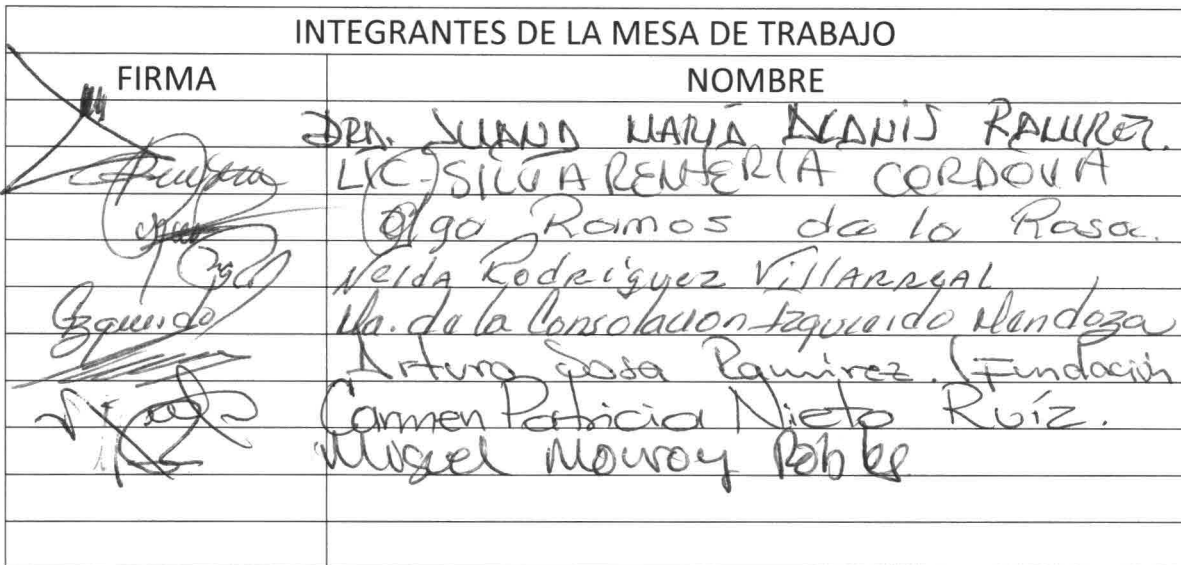 INTEGRANTES DE LA MESA DE TRABAJO
FIRMA NOMBRE
DRA. JUANA MARÍA ALANIS RAMIREZ.
LIC. SILVIA RENTERÍA CORDOVA
Olga Ramos de la Rosa.
Nelda Rodríguez VillARREAL
Izquierdo Ma. de la Consolación Izquierdo Mendoza
Arturo Sosa Ramírez. (Fundación
Carmen Patricia Nieto Ruíz.
Miguel Monroy Robles